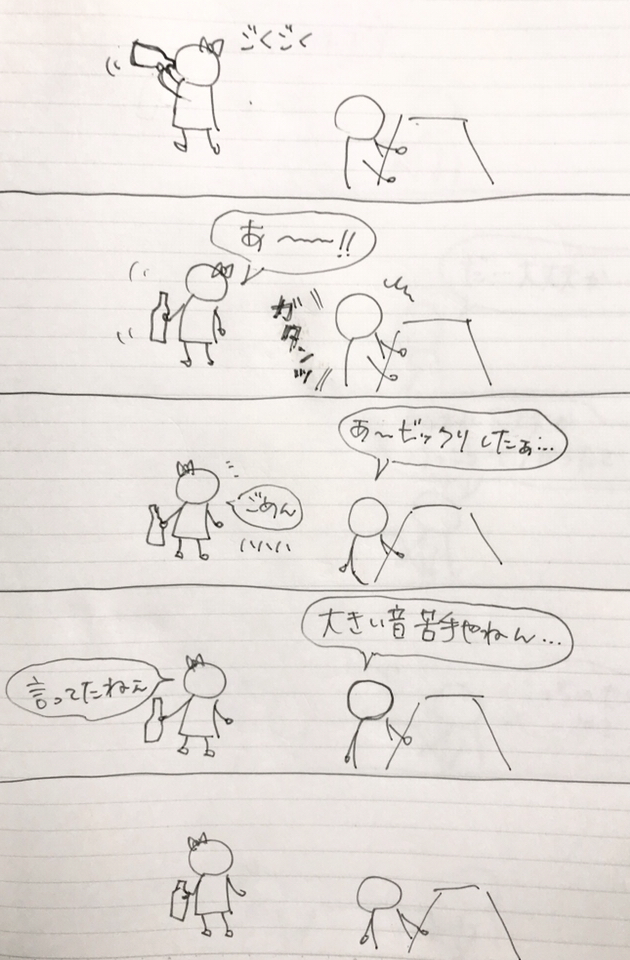 ごくごく
あ〜〜!!
ガターンッ
あ〜ビックリしたぁ…
ごめん
ハハハハ
大きい音苦手やねん…
言ってたねぇ